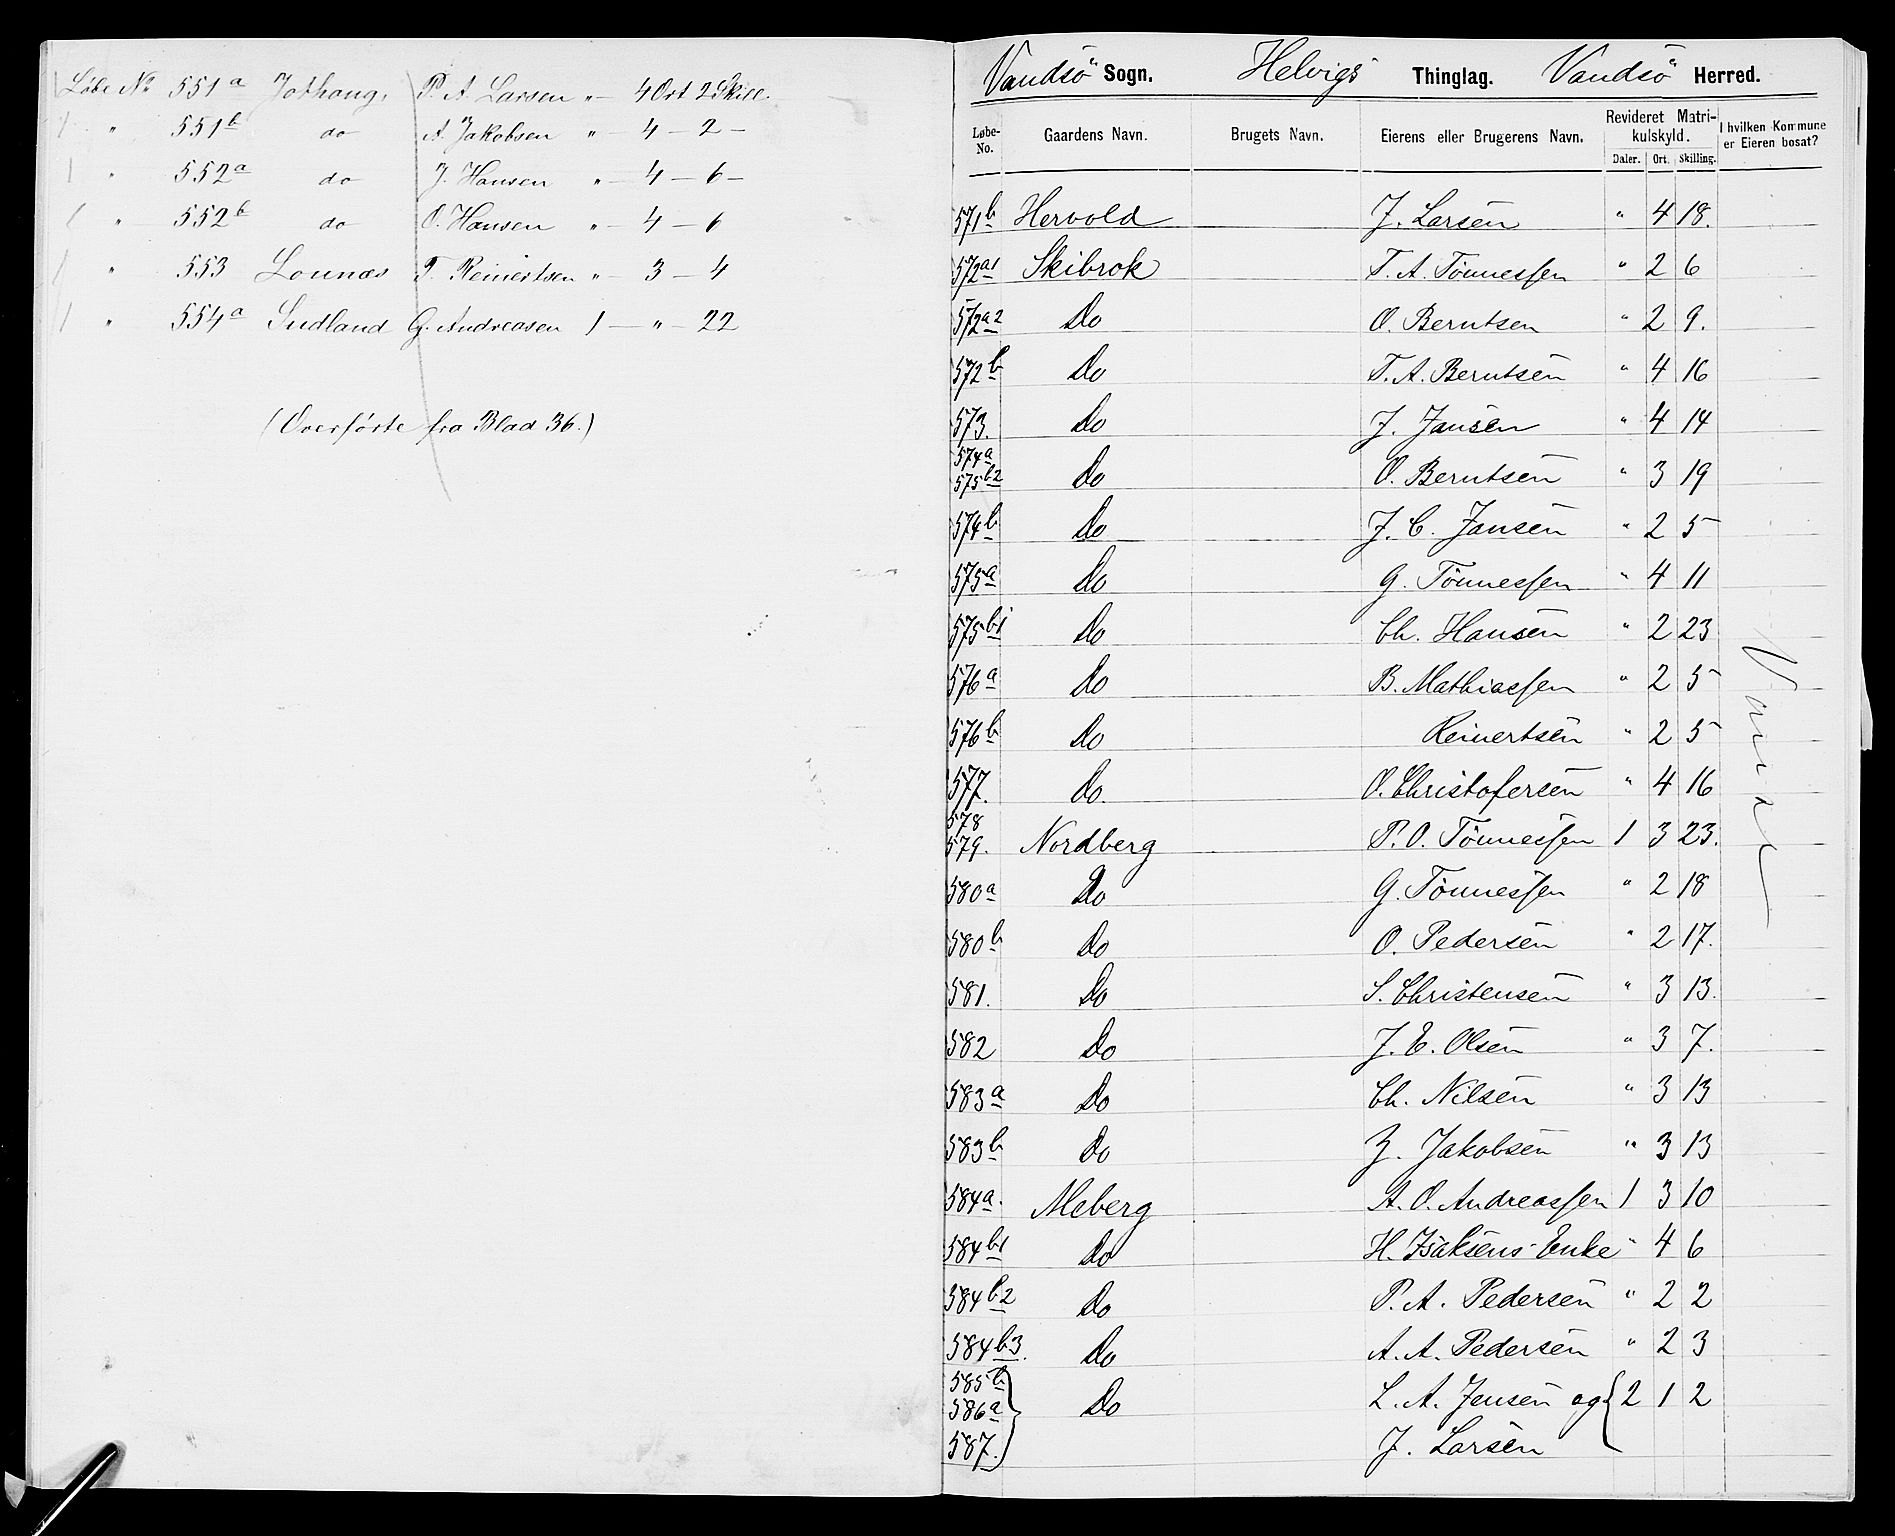 Løbe No 551a Jothaug, P. A. Larsen " — 4 Ort 2 Skill.
" 551b do A. Jakobsen " — 4 — 2 —
" 552a do J. Hansen " — 4 — 6 —
" 552b do O. Hansen " — 4 — 6
" 553 Lounæs T. Reinertsen " — 3 — 4
" 554a Sudland G. Andreasen 1 — " — 22
(Overførte fra Blad 36.)
Vandsö Sogn. Helvigs Thinglag. Vandsö Herred.
Løbe-No. Gaardens Navn. Brugets Navn. Eierens eller Brugerens Navn. Revideret Matrikulskyld. Daler. Ort. Skilling. I hvilken Kommune er Eieren bosat?
571b Hervold J. Larsen " 4 18.
572a1 Skibrok T. A. Tönnessen " 2 6
572a2 Do O. Berntsen " 2 9.
572b Do T. A. Berntsen " 4 16
573. Do J. Jansen " 4 14
574a 575b2 Do O. Berntsen " 3 19
574b Do J. C. Jansen " 2 5
575a Do G. Tönnessen " 4 11
575b1 Do Ch. Hansen " 2 23
576a Do B. Mathiassen " 2 5
576b Do Reinertsen " 2 5
577. Do. O. Christofersen " 4 16
578 579. Nordberg P. O. Tönnessen 1 3 23.
580a Do G. Tönnessen " 2 18
580b Do O. Pedersen " 2 17.
581. Do S. Christensen " 3 13.
582 Do J. E. Olsen " 3 7.
583a Do Ch. Nilsen " 3 13
583b Do Z. Jakobsen " 3 13
584a. Meberg A. O. Andreassen 1 3 10
584b1 Do H. Isaksens Enke " 4 6
584b2 Do P. A. Pedersen " 2 2
584b3. Do A. A. Pedersen " 2 3
585b 586a 587. Do L. A. Jensen og 2 1 2
J. Larsen